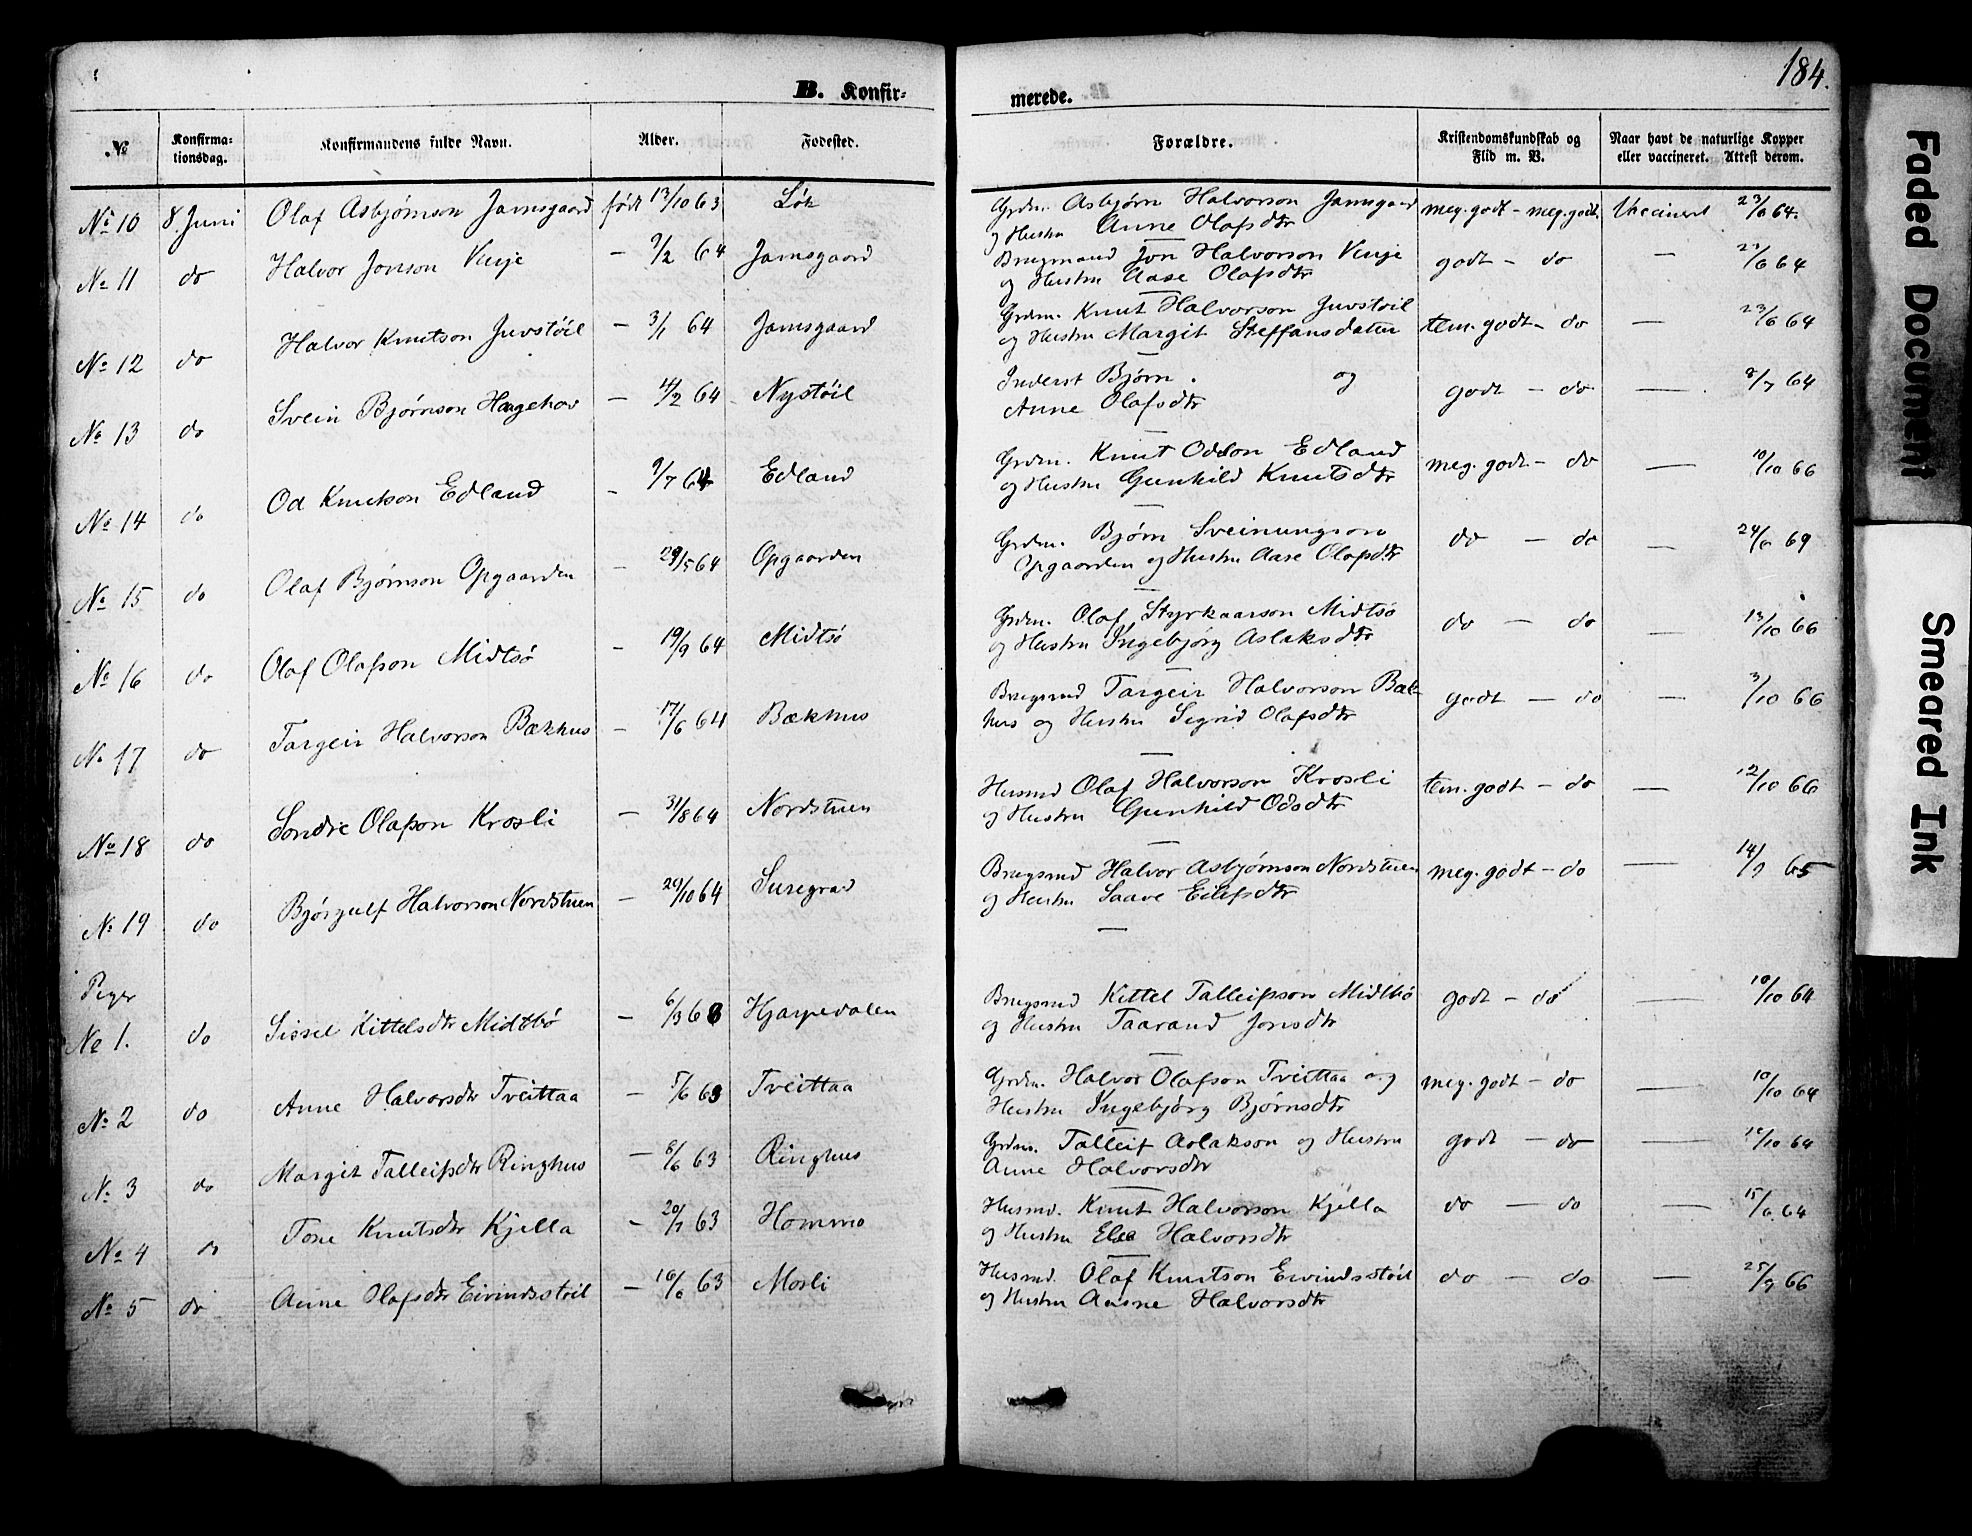 184.
B. Konfir-
merede.
№ Konfirma-tionsdag. Konfirmandens fulde Navn. Alder. Fødested. Forældre. Kristendomskundskab og Flid m. V. Naar havt de naturlige Kopper eller vaccineret. Attest derom.
No 10 8. Juni Olaf Asbjørnson Jamsgaard født 13/10 63 Løk Grdm. Asbjørn Halvorson Jamsgaard meg. godt - meg. godt Vaccineret 23/6 64.
og Hustru Anne Olafsdtr
No 11 do Halvor Jonson Vinje — 9/2 64 Jamsgaard Brugmand Jon Halvorson Vinje godt - do — 23/6 64
og Hustru Aase Olafsdtr
No 12 do Halvor Knutson Juvstøil — 3/1 64 Jamsgaard Grdm. Knut Halvorson Juvstøil tem. godt - do — 23/6 64
og Hustru Margit Steffansdatter
No 13 do Svein Bjørnson Haugehov — 4/2 64 Nystøil Inderst Bjørn . og godt - do — 8/7 64
Anne Olafsdtr
No 14 do Od Knutson Edland - 9/7 64 Edland Grdm. Knut Odson Edland meg. godt - do — 10/10 66
og Hustru Gunhild Knutsdtr
No 15 do Olaf Bjørnson Opgaarden — 29/5 64 Opgaarden Grdm. Bjørn Sveinungson do — do — 24/6 69
Opgaarden og Hustru Aase Olafsdtr
No 16 do Olaf Olafson Midtsø - 19/9 64 Midtsø Grdm. Olaf Styrkaarson Midtsø do — do — 13/10 66
og Hustru Ingebjørg Aslaksdtr
No 17 do Targeir Halvorson Bækhus — 17/6 64 Bækhus Brugsmd Targeir Halvorson Bæk- godt — do — 3/10 66
hus og Hustru Sigrid Olafsdtr
No 18 do Sondre Olafson Krosli — 31/8 64 Nordstuen Husmd Olaf Halvorson Krosli tem. godt — do — 12/10 66
og Hustru Gunhild Odsdtr
No 19 do Bjørgulf Halvorson Nordstuen — 20/10 64 Suregrad Brugsmd Halvor Asbjørnson Nordstuen meg. godt - do — 14/9 65
og Hustru Saave Eilefsdtr
Piger
No 1. do Sissel Kittelsdtr Midtbø — 6/3 63 Hjarpedalen Brugsmd Kittel Talleifsson Midtbø godt - do — 10/10 64
og Hustru Taarand Jonsdtr
No 2 do Anne Halvorsdtr Tveittaa — 5/6 63 Tveittaa Grdm. Halvor Olafson Tveittaa og meg. godt - do — 10/10 64
Hustru Ingebjørg Bjørnsdtr
No 3 do Margit Talleifsdtr Ringhus — 8/6 63 Ringhus Grdm. Talleif Aslakson og Hustru godt - do — 10/10 64
Anne Halvorsdtr
No 4 do Tone Knutsdtr Kjella — 20/7 63 Hommo Husmd. Knut Halvorson Kjella do — do — 15/6 64
og Hustru Halvorsdtr
No 5 do Anne Olafsdtr Eivindsstøil — 16/6 63 Mosli Husmd. Olaf Knutson Eivindsstøil do — do — 25/9 66
og Hustru Aasne Halvorsdtr
Faded Document
Smeared Ink